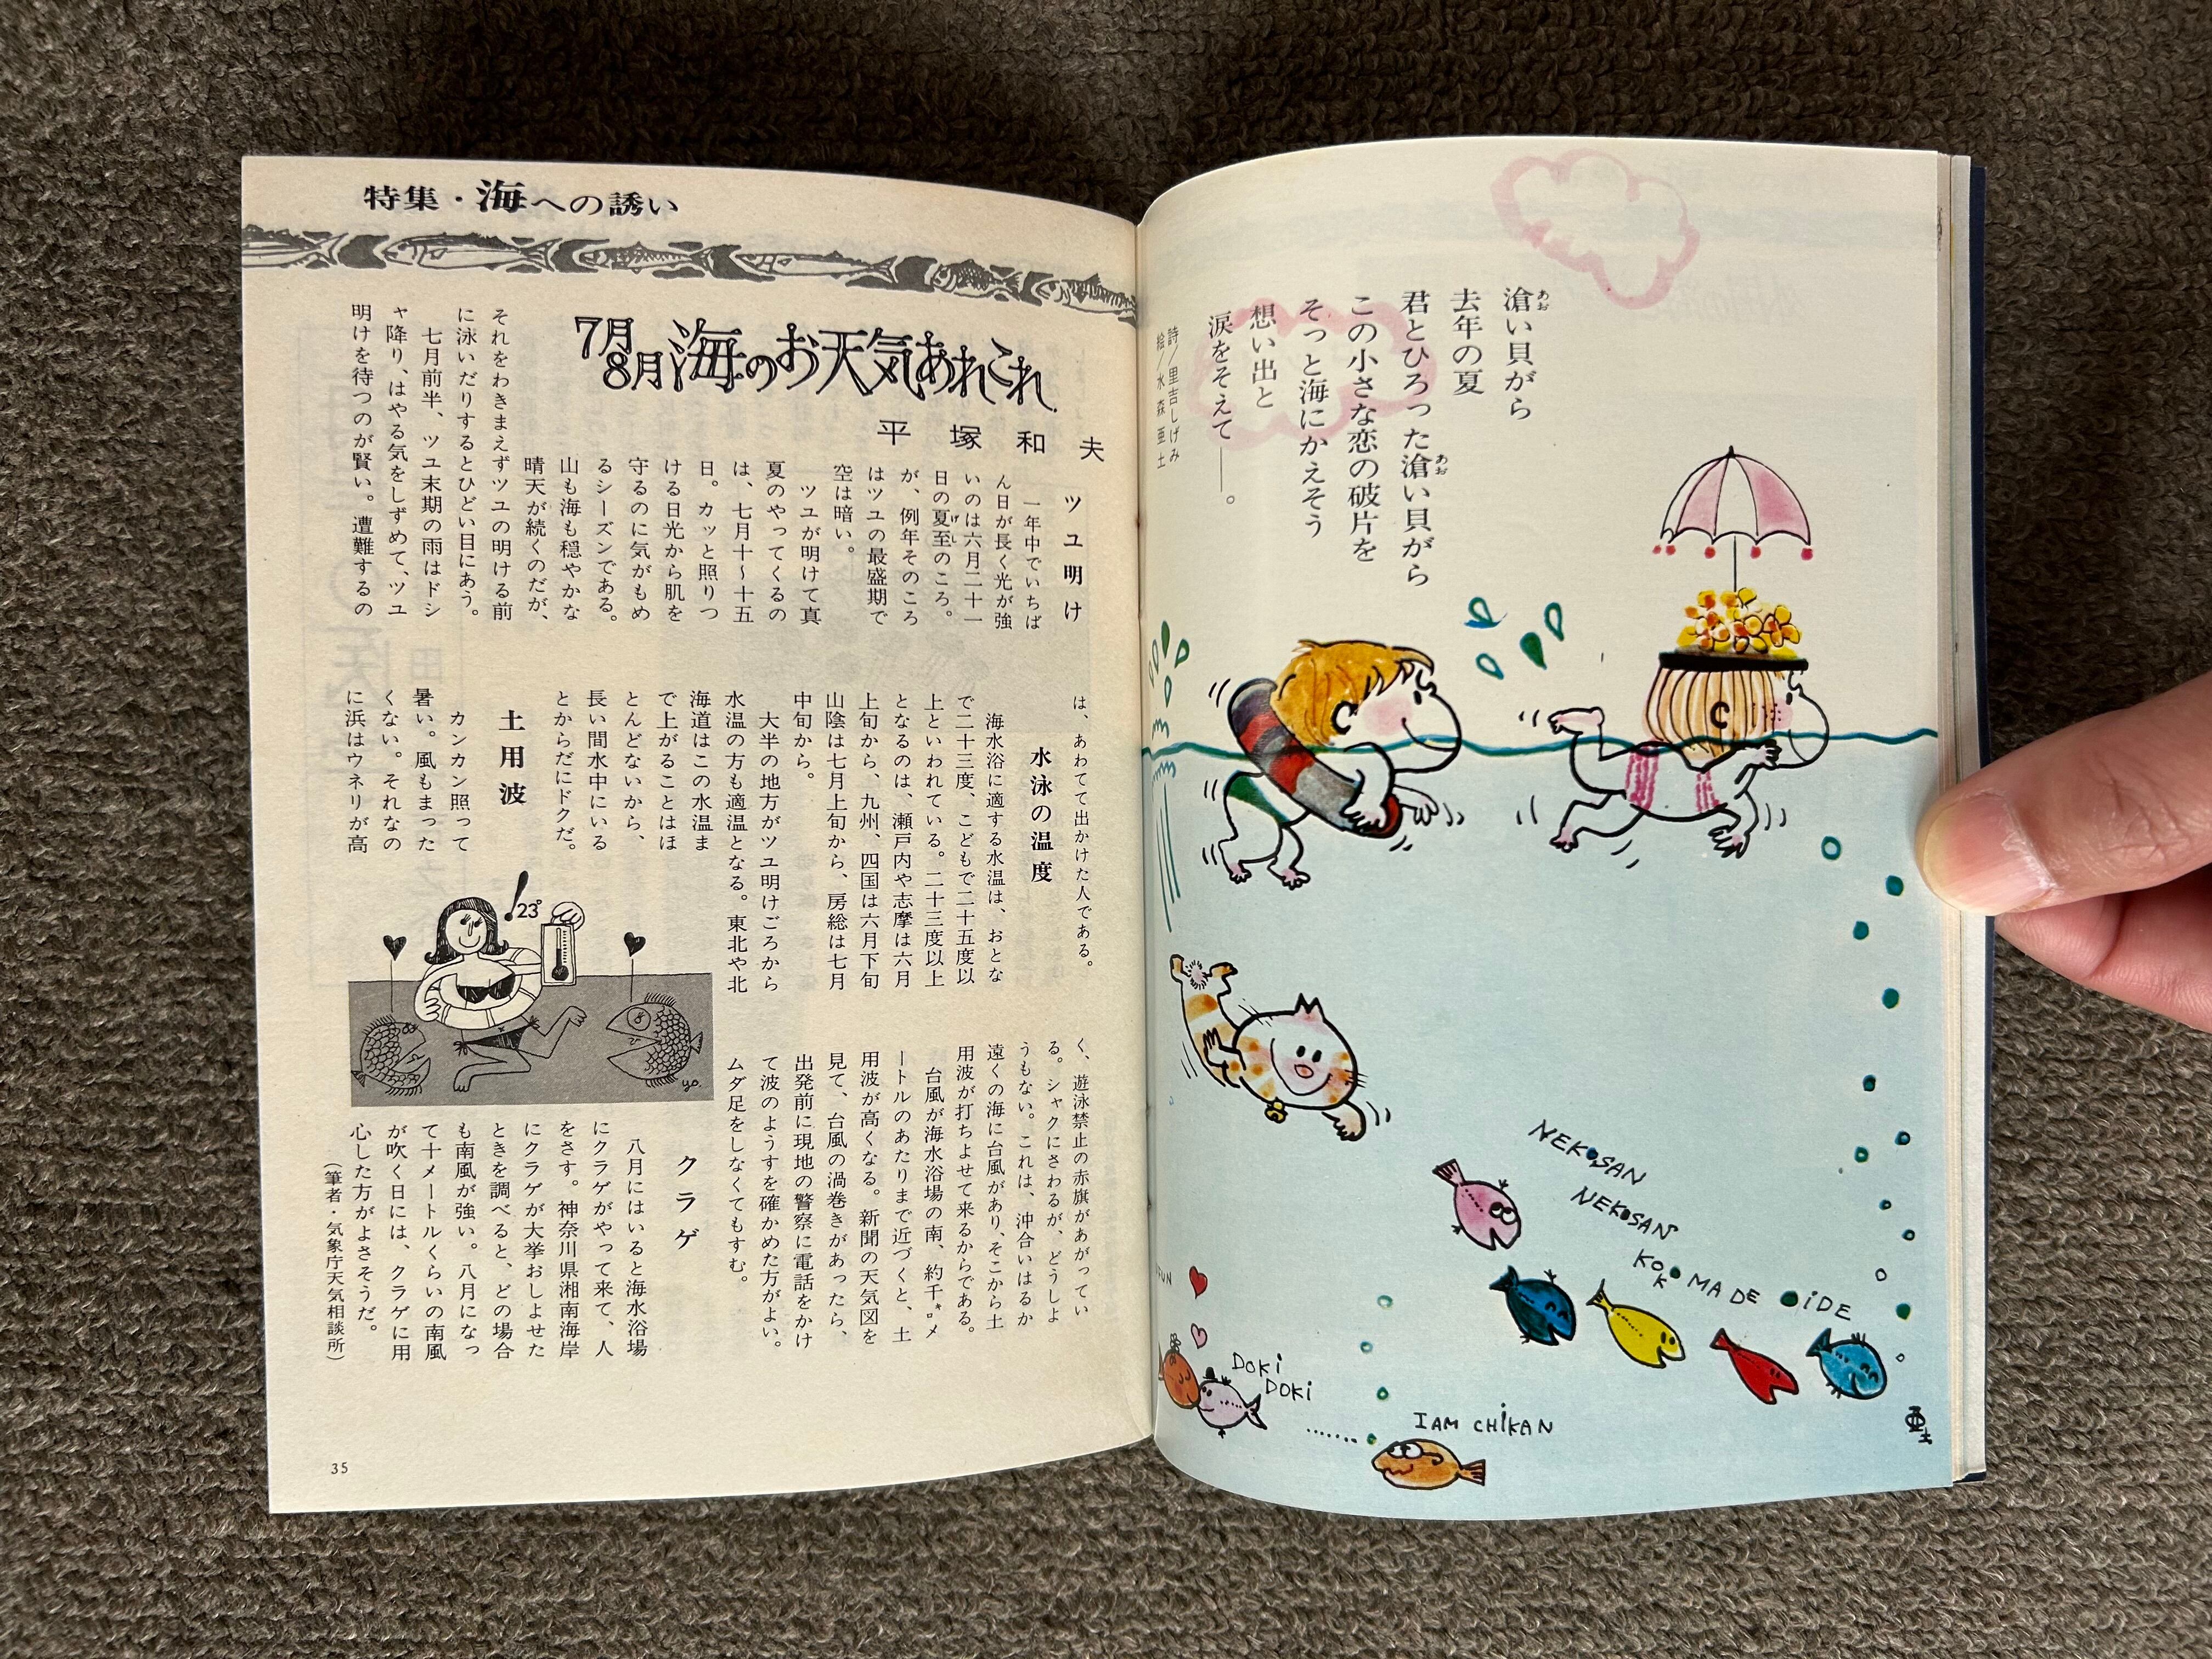 滄い貝がら
あお
去年の夏
君とひろった滄い貝がら
あお
この小さな恋の破片を
そっと海にかえそう
想い出と
涙をそえて——。
詩／里吉しげみ
絵／水森亜土
NEKOSAN
NEKOSAN
KOKO MADE OIDE
FUN
DOKI
DOKI
I AM CHIKAN
亜土
特集・海への誘い
7月
8月海のお天気あれこれ
平塚和夫
ツユ明け
一年中でいちば
ん日が長く光が強
いのは六月二十一
日の夏至のころ。
げし
が、例年そのころ
はツユの最盛期で
空は暗い。
ツユが明けて真
夏のやってくるの
は、七月十〜十五
日。カッと照りつ
ける日光から肌を
守るのに気がもめ
るシーズンである。
山も海も穏やかな
晴天が続くのだが、
それをわきまえずツユの明ける前
に泳いだりするとひどい目にあう。
七月前半、ツユ末期の雨はドシ
ャ降り、はやる気をしずめて、ツユ
明けを待つのが賢い。遭難するの
は、あわてて出かけた人である。
水泳の温度
海水浴に適する水温は、おとな
で二十三度、こどもで二十五度以
上といわれている。二十三度以上
となるのは、瀬戸内や志摩は六月
上旬から、九州、四国は六月下旬
山陰は七月上旬から、房総は七月
中旬から。
大半の地方がツユ明けごろから
水温の方も適温となる。東北や北
海道はこの水温ま
で上がることはほ
とんどないから、
長い間水中にいる
とからだにドクだ。
土用波
カンカン照って
暑い。風もまった
くない。それなの
に浜はウネリが高
く、遊泳禁止の赤旗があがってい
る。シャクにさわるが、どうしよ
うもない。これは、沖合いはるか
遠くの海に台風があり、そこから土
用波が打ちよせて来るからである。
台風が海水浴場の南、約千㌔メ
ートルのあたりまで近づくと、土
用波が高くなる。新聞の天気図を
見て、台風の渦巻きがあったら、
出発前に現地の警察に電話をかけ
て波のようすを確かめた方がよい。
ムダ足をしなくてもすむ。
クラゲ
八月にはいると海水浴場
にクラゲがやって来て、人
をさす。神奈川県湘南海岸
にクラゲが大挙おしよせた
ときを調べると、どの場合
も南風が強い。八月になっ
て十メートルくらいの南風
が吹く日には、クラゲに用
心した方がよさそうだ。
（筆者・気象庁天気相談所）
!23°
yo.
35